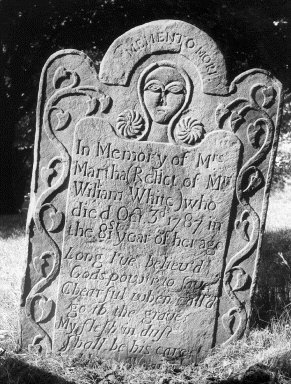 MEMENTO MORI
In Memory of Mrs
Martha (Relict of Mr
William White) who
died Oct 3d 1787 in
the 8 year of her age
Long I've
Gods
Chearful when
to the grave
My flesh in dust
Shall be his care